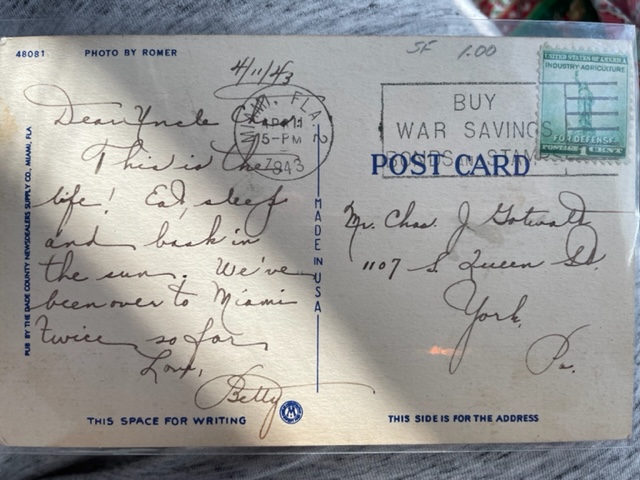 48081 PHOTO BY ROMER
SF 1.00
4/11/43
UNITED STATES OF AMERICA
INDUSTRY AGRICULTURE
FOR DEFENSE
POSTAGE 1 CENT
MIAMI, FLA. 2
APR 11
5-PM
1943
BUY
WAR SAVINGS
BONDS STAMPS
POST CARD
Dear Uncle
This is the
life! Eat, sleep
and bask in
the sun. We've
been over to Miami
twice so far
Love,
Betty
PUB BY THE DADE COUNTY NEWSDEALERS SUPPLY CO. MIAMI, FLA
MADE IN USA
Mr. Chas. J. Gotwalt
1107 S. Queen St.
York,
Pa.
THIS SPACE FOR WRITING
THIS SIDE IS FOR THE ADDRESS